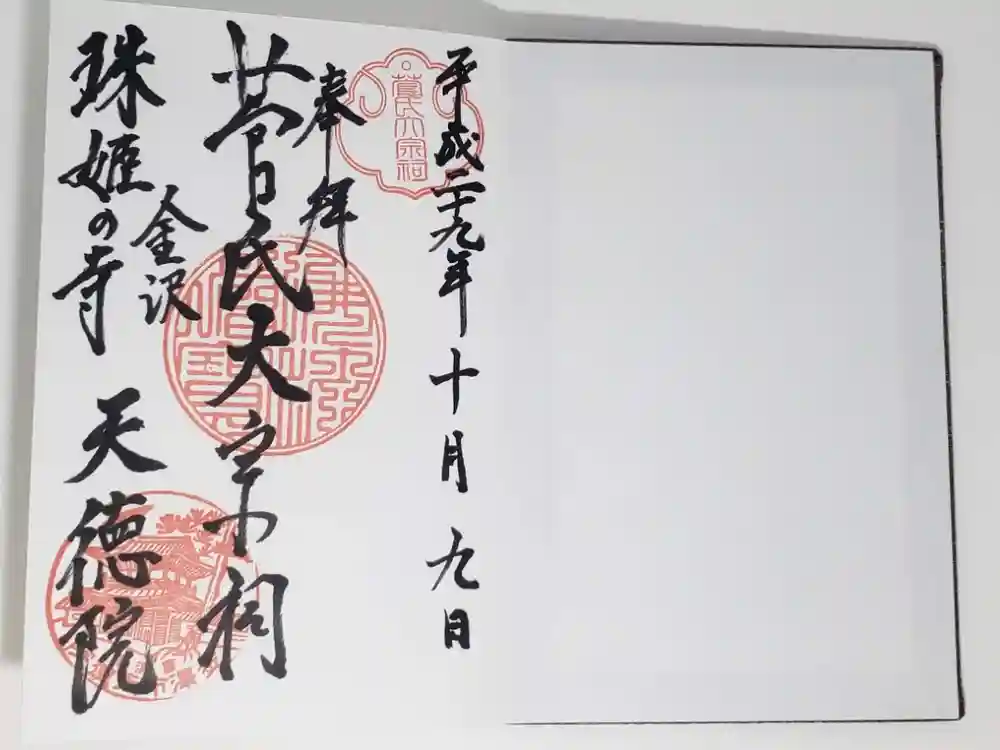 平成二十九年 十月 九日
菅氏大宗祠
奉拝
菅氏大宗祠
金沢
珠姫の寺 天徳院